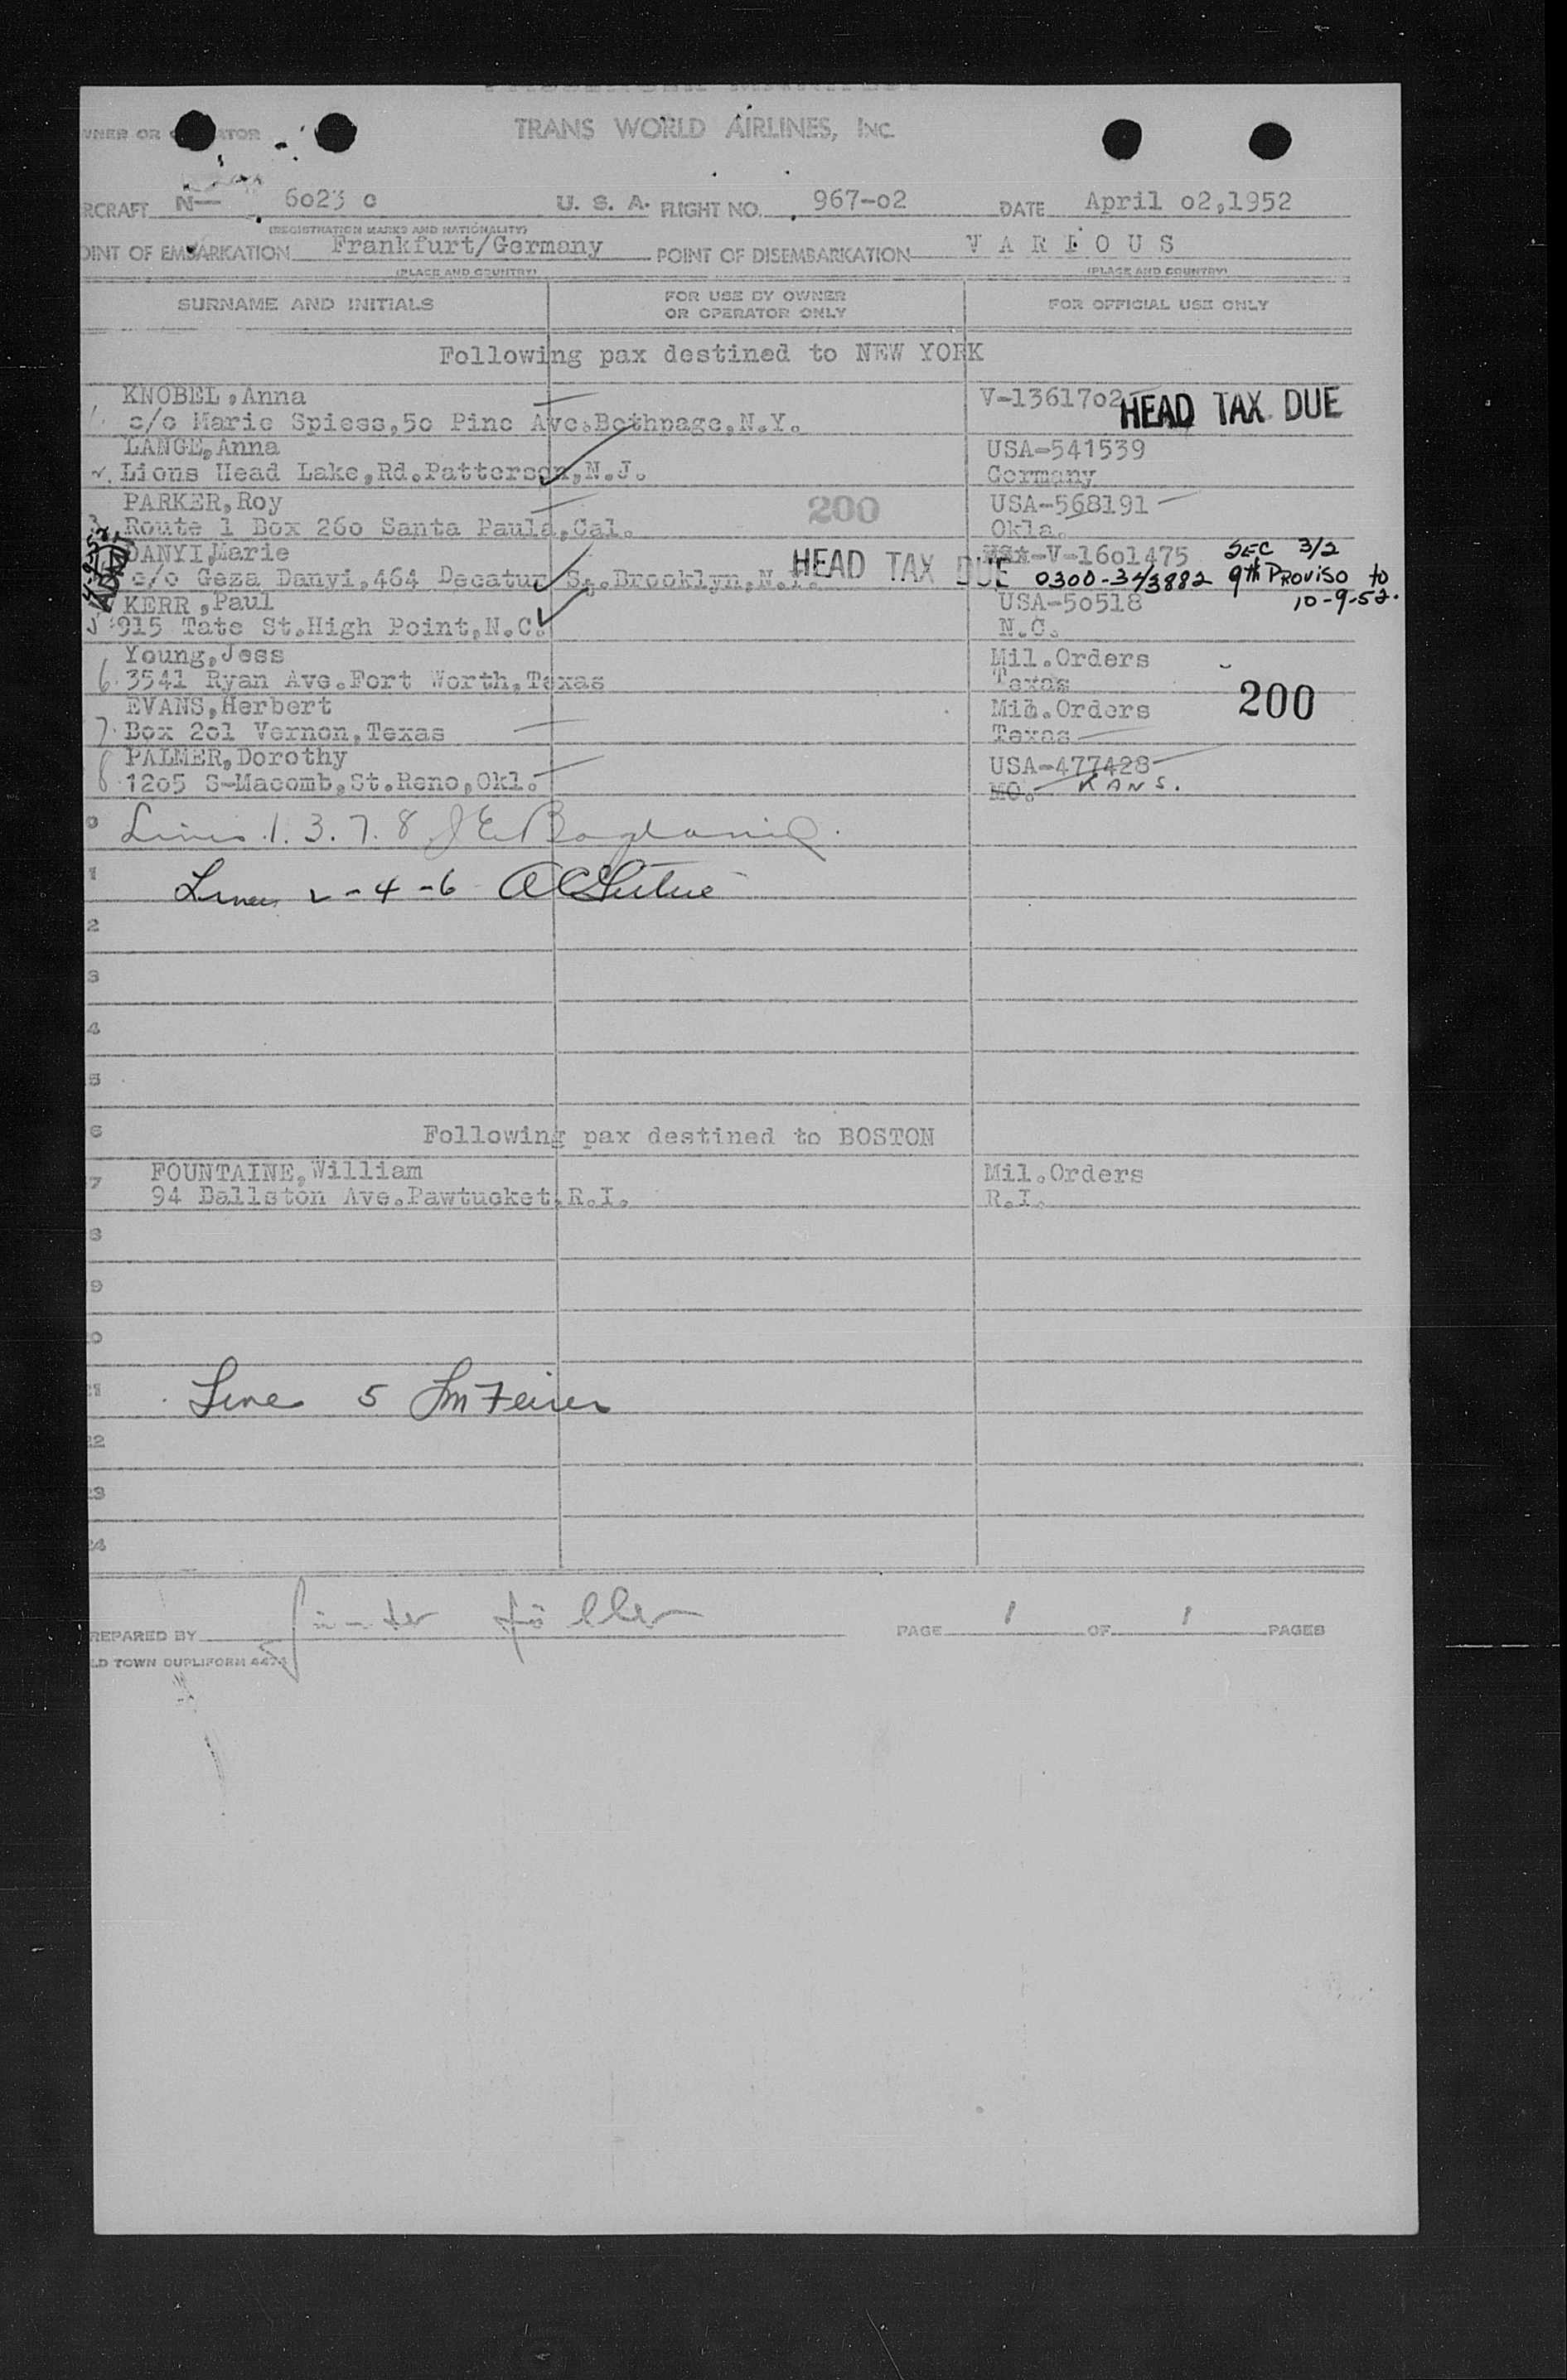 TRANS WORLD AIRLINES, Inc.
RCRAFT N- 6023 c U. S. A. FLIGHT NO. 967-o2 DATE April o2,1952
(REGISTRATION MARKS AND NATIONALITY)
OINT OF EMBARKATION Frankfurt/Germany POINT OF DISEMBARKATION V A R I O U S
(PLACE AND COUNTRY) (PLACE AND COUNTRY)
SURNAME AND INITIALS FOR USE BY OWNER OR OPERATOR ONLY FOR OFFICIAL USE ONLY
Following pax destined to NEW YORK
KNOBEL,Anna V-13617o2 HEAD TAX DUE
c/o Marie Spiess,5o Pine Ave.Bethpage,N.Y.
LANGE,Anna USA-541539
Lions Head Lake,Rd.Patterson,N.J. Germany
PARKER,Roy 200 USA-568191
3 Route 1 Box 26o Santa Paula,Cal. Okla.
DANYI,Marie V-16o1475 SEC 3/2
c/o Geza Danyi,464 Decatur St.Brooklyn,N.Y. HEAD TAX DUE 0300-343882 9th PROVISO to
KERR,Paul USA-5o518 10-9-52.
5 915 Tate St.High Point,N.C. N.C.
Young,Jess Mil.Orders
6. 3541 Ryan Ave.Fort Worth,Texas Texas
EVANS,Herbert Mil.Orders 200
7. Box 2o1 Vernon,Texas Texas
PALMER,Dorothy USA-477428
8 12o5 S-Macomb,St.Reno,Okl. MO. KANS.
Lines 1. 3. 7. 8
1 Lines 2-4-6
2
3
4
5
6 Following pax destined to BOSTON
FOUNTAINE,William Mil.Orders
7 94 Ballston Ave.Pawtucket,R.I. R.I.
8
9
20
21 Line 5
22
23
24
REPARED BY PAGE 1 OF 1 PAGES
LD TOWN DUPLIFORM 4474